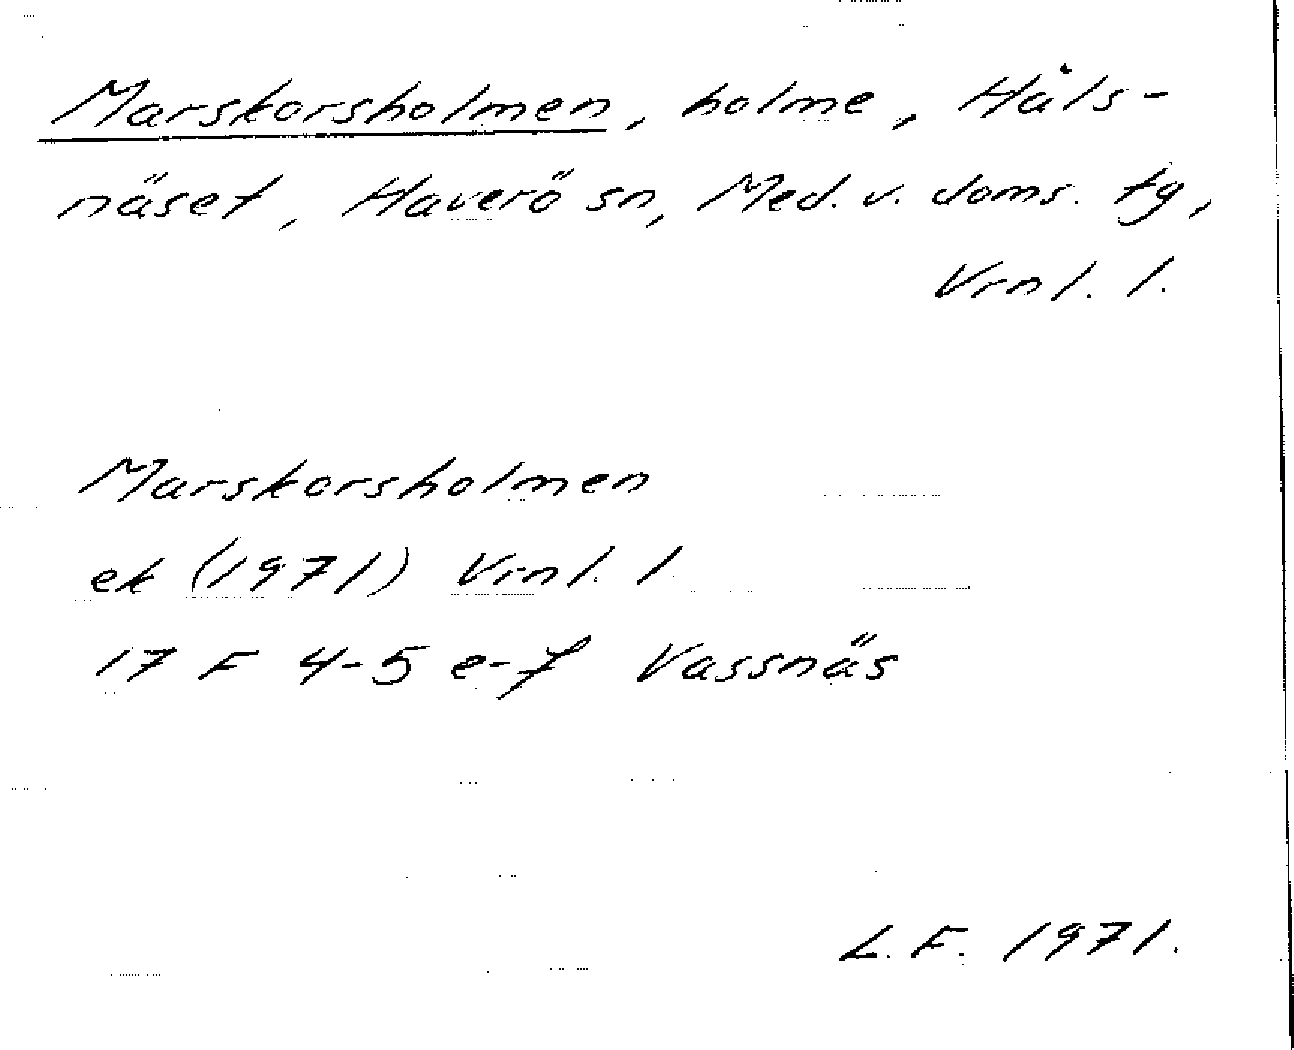 Marskorsholmen, holme, Håls-
näset, Haverö sn, Med. v. doms. tg,
Vrnl. l.
Marskorsholmen
ek (1971) Vrnl. l
17 F 4-5 e-f Vassnäs
L.F. 1971.